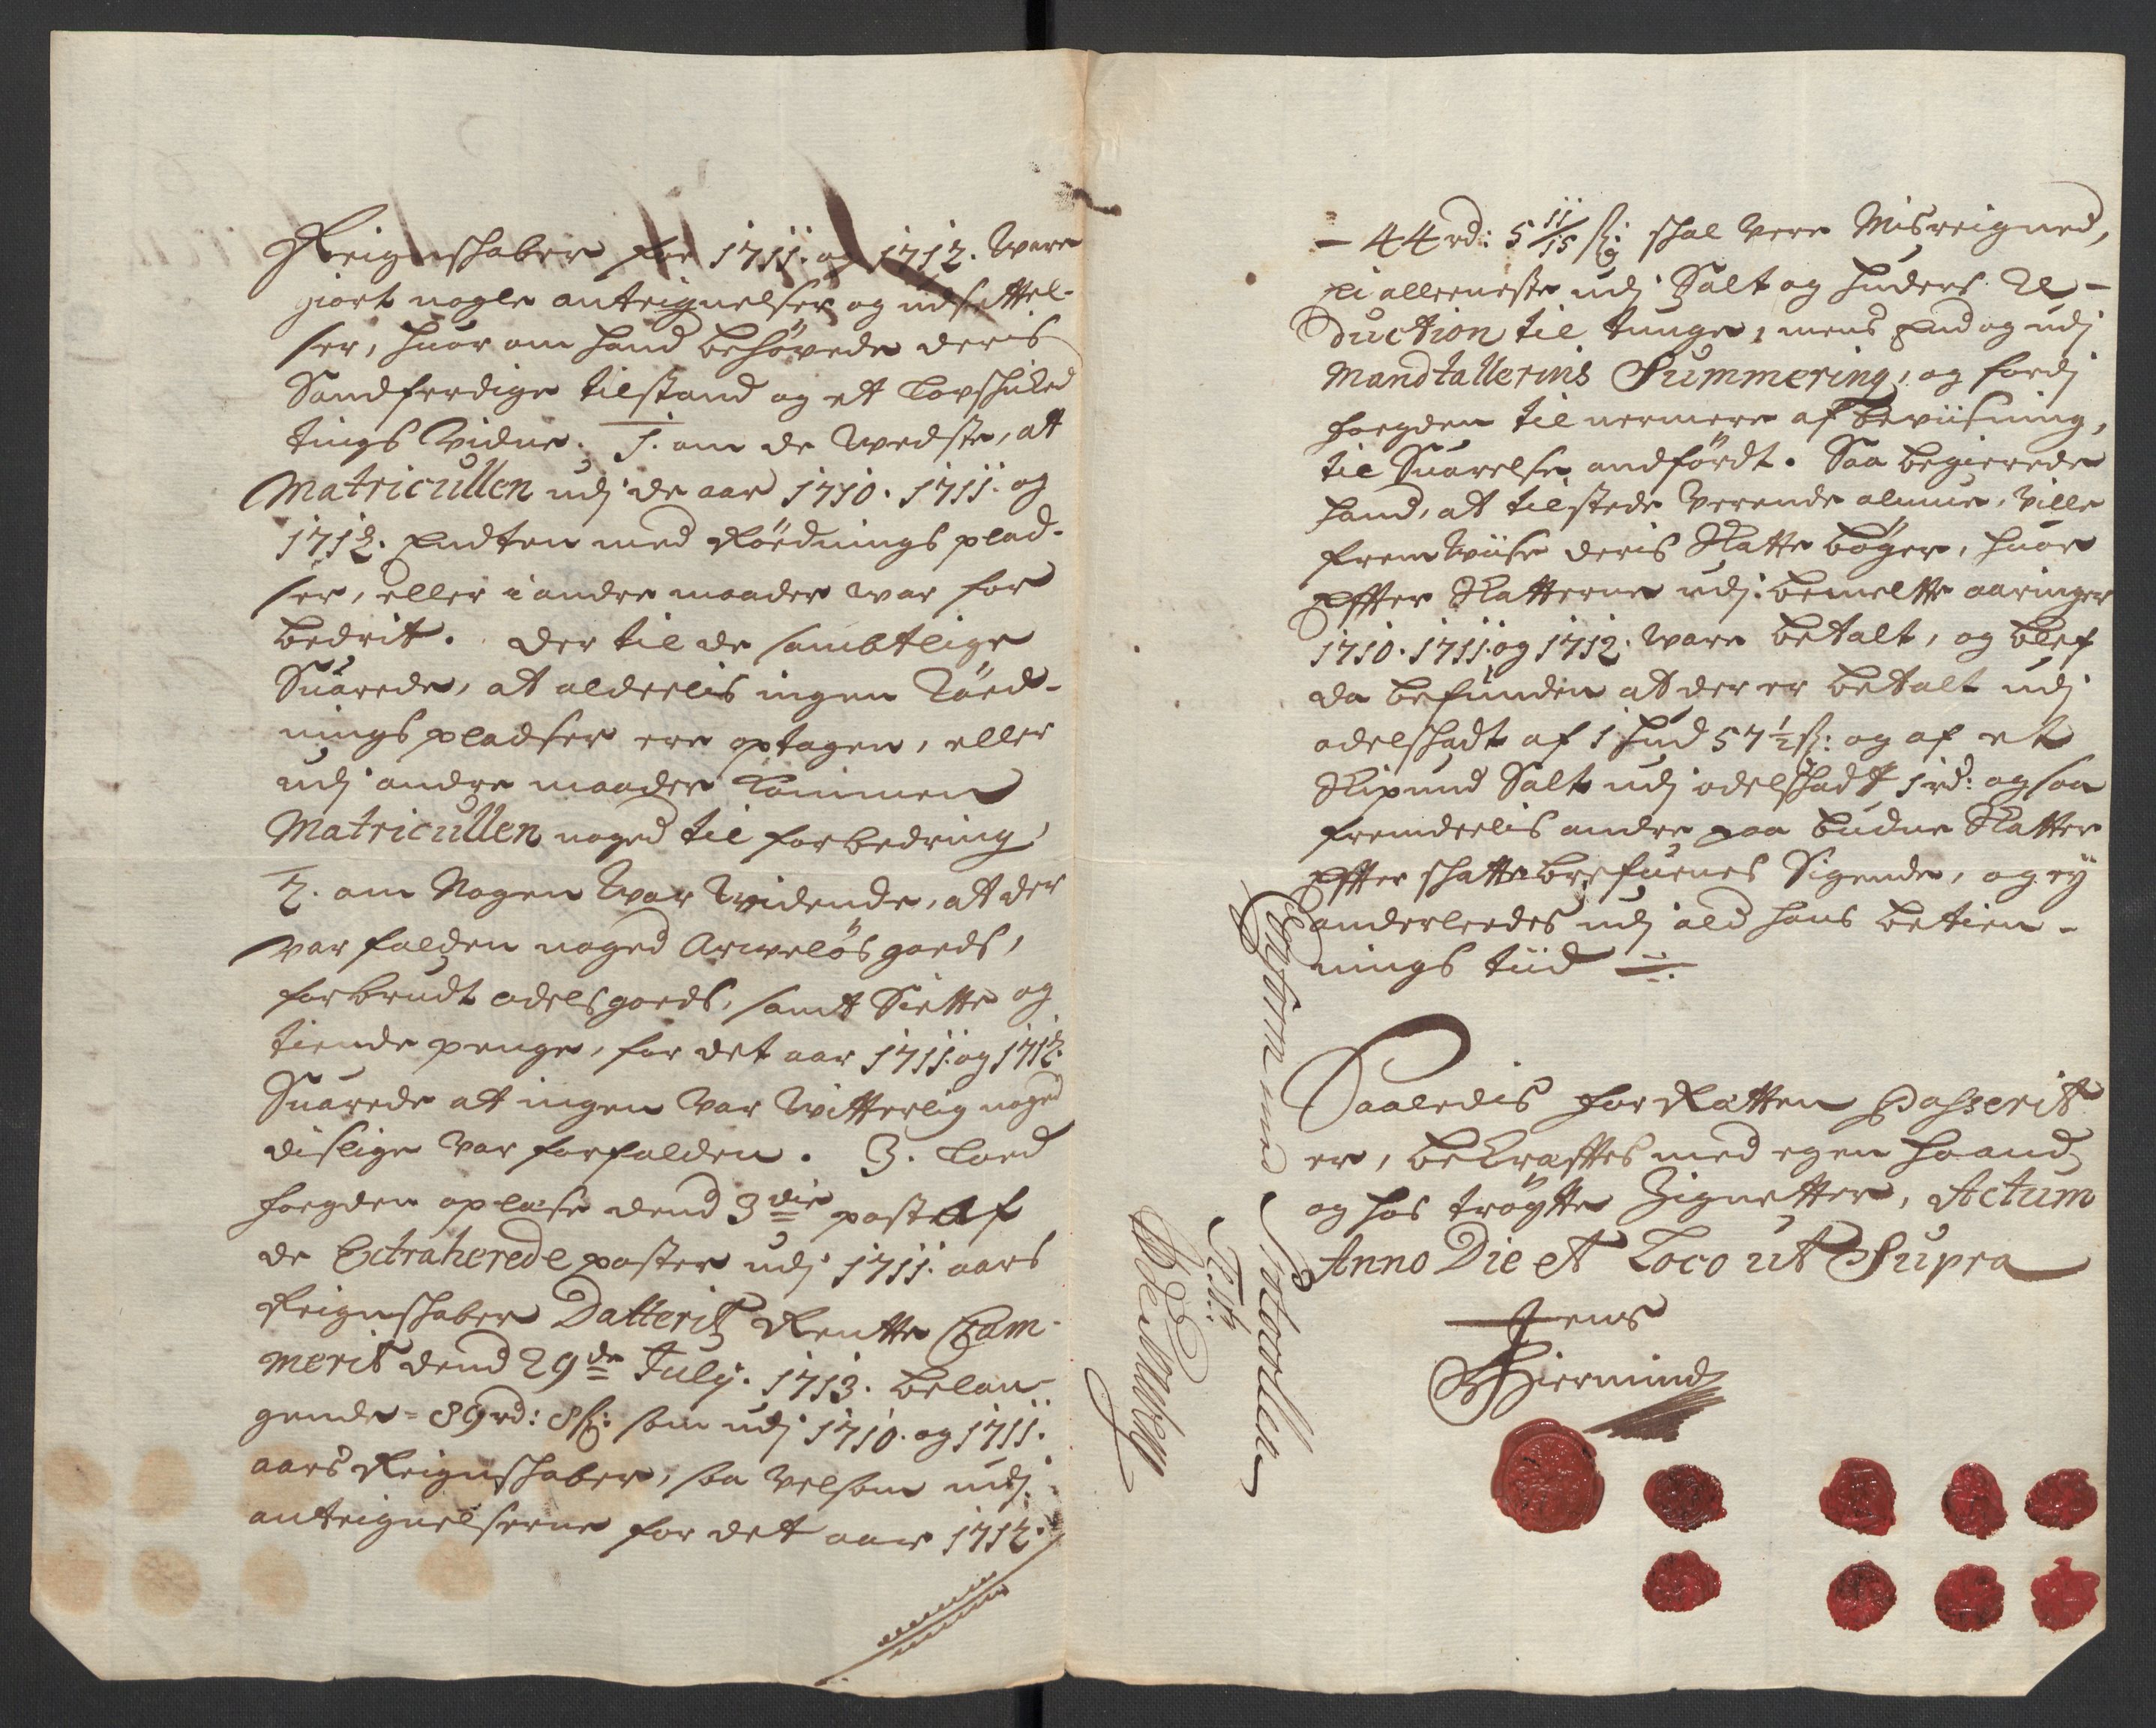 Reignschaber for 1711. og 1712. ware
giort nogle anteignelser og udsettel-
ser, huor om hand behøvede deris
Sandferdige tilstand og et Lovskiked
tings Vidne. 1. om de wedste, at
Matricullen udj de aar 1710. 1711. og
1712. Endten med Rødnings plad-
ser, eller i andre maader war for
bedrit. Der til de sambtlige
Suarede, at alderlis ingen Rød-
nings pladser ere optagen, eller
udj andre maader kommen
Matricullen noged til forbedring,
2. om Nogen war widende, at der
var falden noged Arweløs goeds,
forbrudt odels goeds, samt Siette og
tiende penge, for det aar 1711. og 1712.
Suarede at ingen var witterlig noged
dislige var forfalden. 3. Loed
fogden oplæse dend 3die post Af
de Extraherede poster udj 1711. aars
Reignschaber Datterit Rentte Cam-
merit dend 29de July. 1713. belan-
gende - 89 rd: 8 s: som udj 1710. og 1711.
aars Reignschaber, saa velsom udj
anteignelserne for det aar 1712.
- 44 rd: 5 11/15 s: skal vere Misreigned,
ei alleeneste udj Salt og huders Re-
duction til tunge, mens End og udj
Mandtallerins Summering, og fordj
fogden til nermere af beviisning,
til Suarelse andfördt. Saa begierede
hand, at tilstede verende almue, ville
frem wiise deris Skatte bøger, huor
Effter Skatterne udj bemeltte aaringer
1710. 1711. og 1712. ware betalt, og blef
da befunden at der er betalt udj
odelskadt af 1 hud 57 1/2 s: og af et
Skipund Salt udj odelskadt 1 rd: og saa
fremdeelis andre paa budne Skatter
Effter skattebrefuenes Sigende, og ey
anderleedes udj ald hans betien-
nings tiid
Saaledis for Ratten Passerit
er, bekrafftes med egen haand
og hos trøgtte Zignetter, Actum
Anno Die et Loco ut Supra
Jens
Biermind